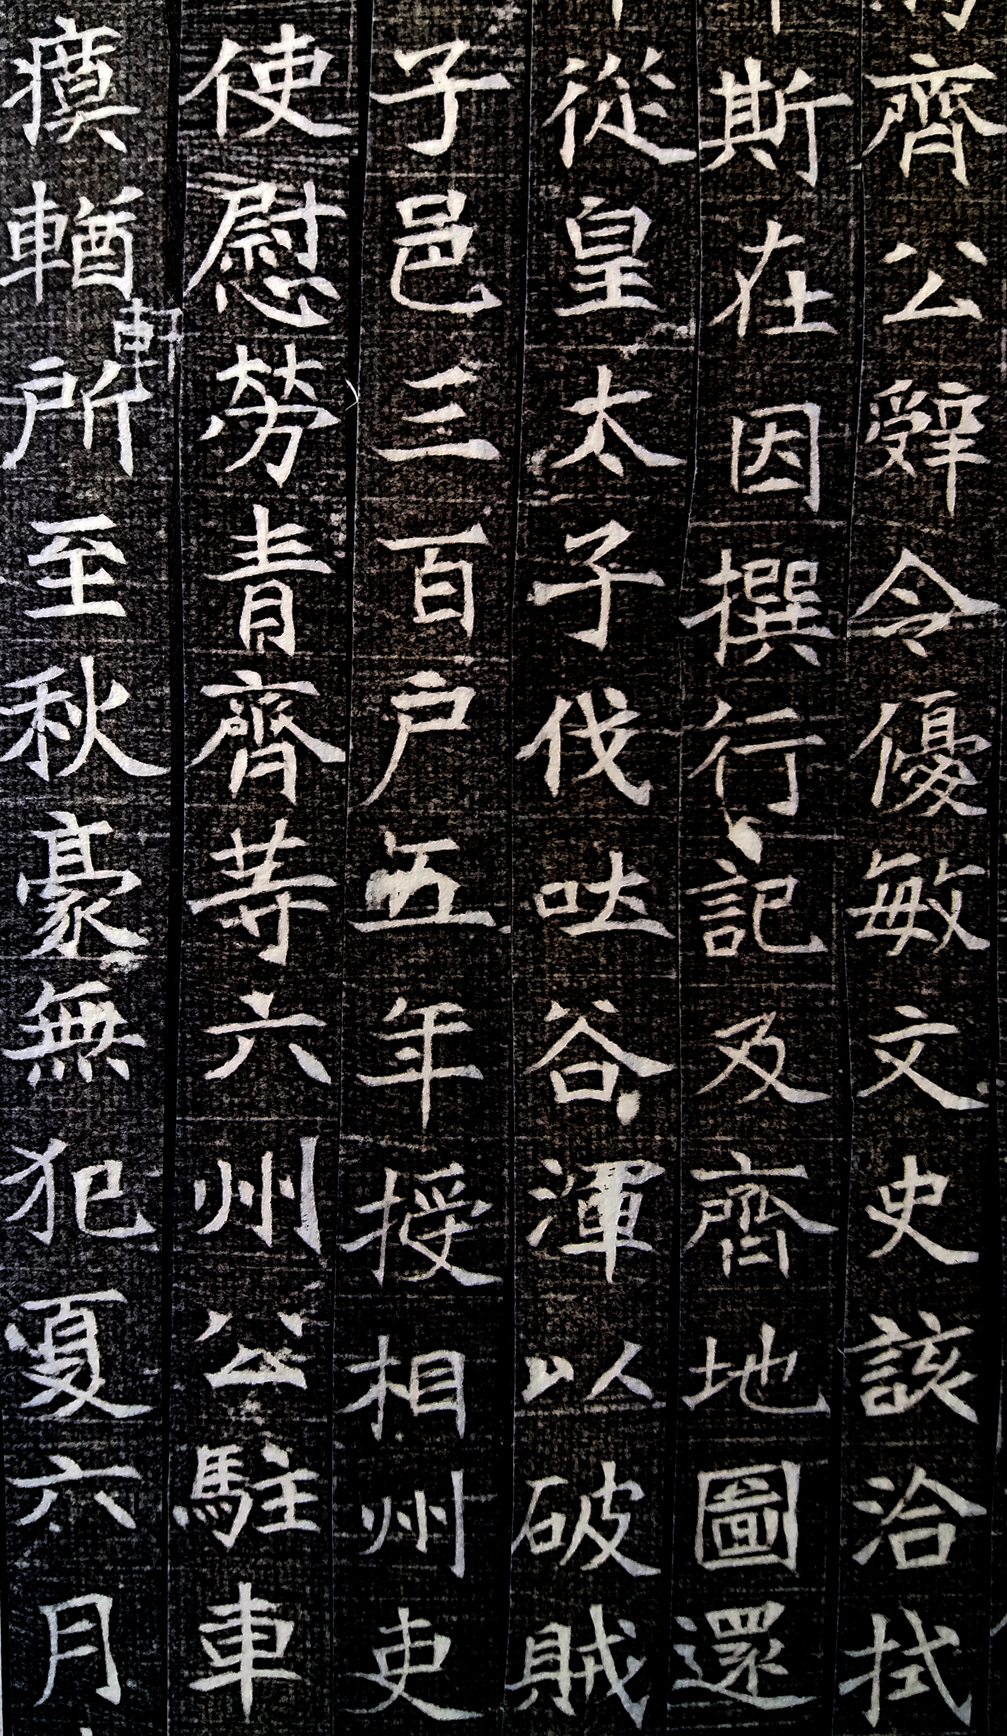 齊公辭令優敏文史該洽拭
斯在因撰行記及齊地圖還
從皇太子伐吐谷渾以破賊
子邑三百户五年授相州吏
使慰勞青齊等六州公駐車
瘼輶軒所至秋豪無犯夏六月